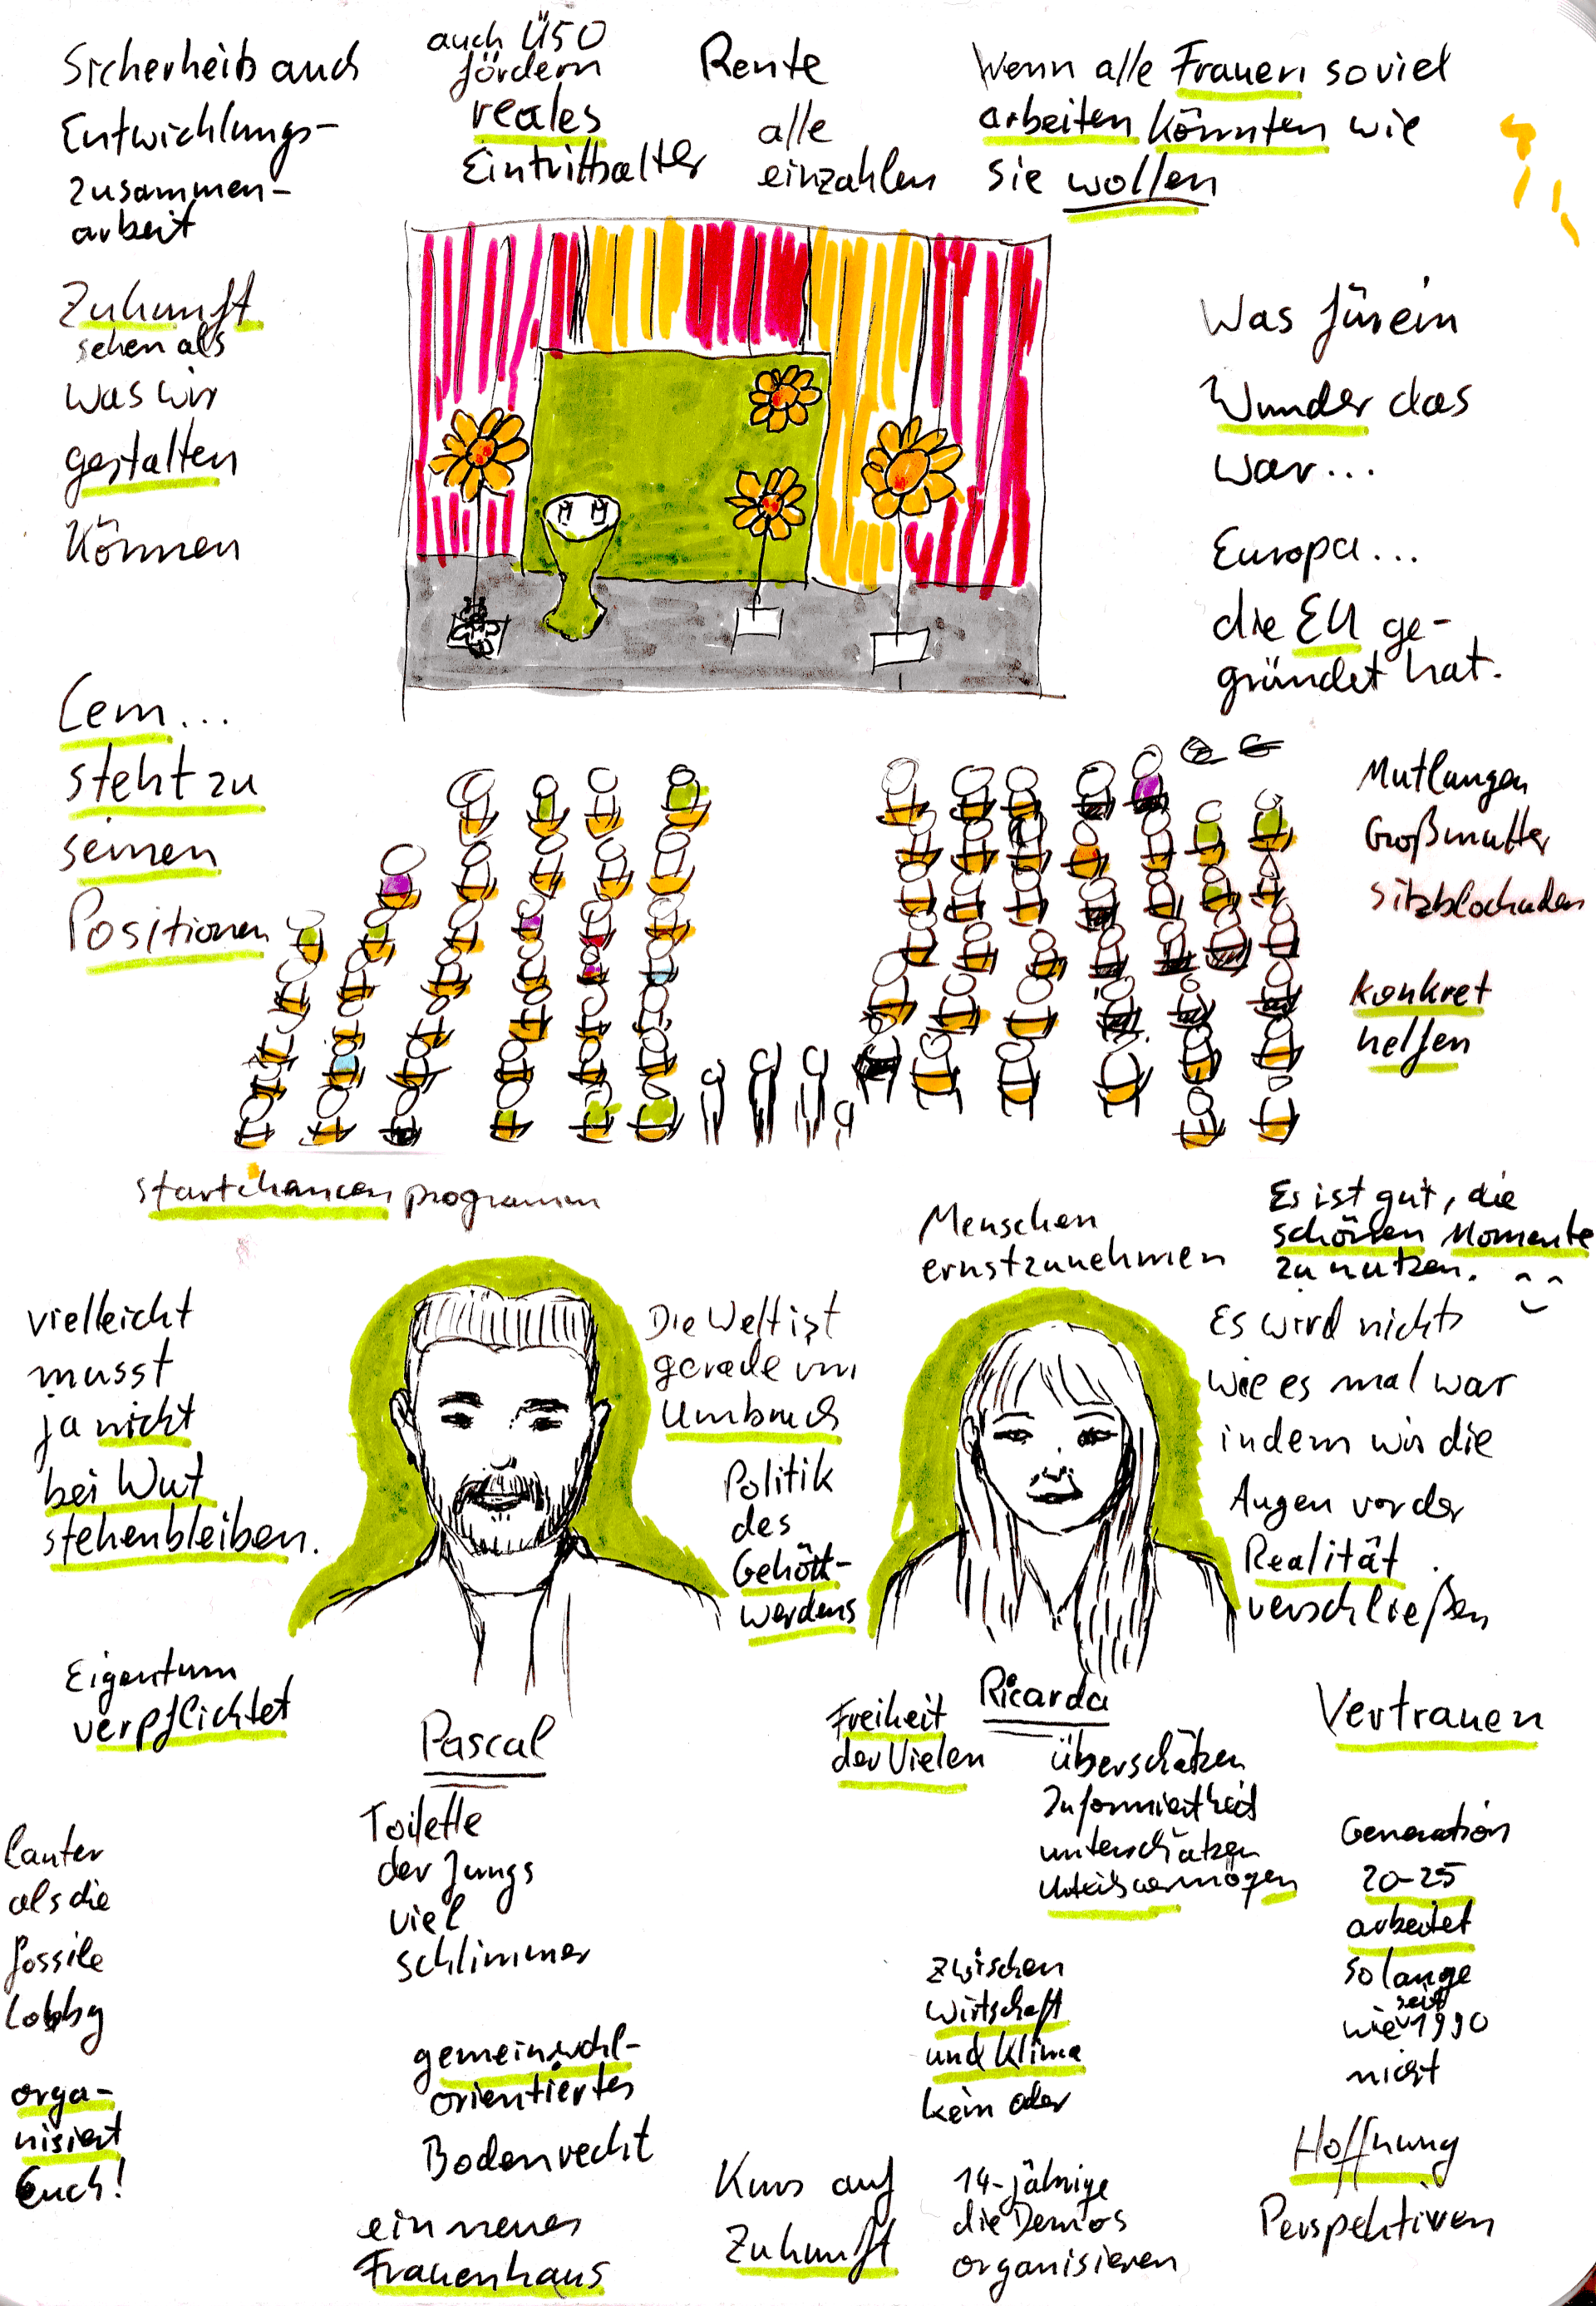 Sicherheit auch
Entwicklungs-
zusammen-
arbeit
auch Ü50
fördern
reales
Eintrittsalter
Rente
alle
einzahlen
Wenn alle Frauen soviel
arbeiten könnten wie
sie wollen
Zukunft
sehen als
was wir
gestalten
können
Was für ein
Wunder das
war...
Europa...
die EU ge-
gründet hat.
Cem...
steht zu
seinen
Positionen
Mutlangen
Großmutter
Sitzblockaden
konkret
helfen
Startchancenprogramm
Menschen
ernstzunehmen
Es ist gut, die
schönen Momente
zu nutzen.
vielleicht
musst
ja nicht
bei Wut
stehenbleiben.
Die Welt ist
gerade im
Umbruch
Politik
des
Gehört-
werdens
Es wird nicht
wie es mal war
indem wir die
Augen vor der
Realität
verschließen
Eigentum
verpflichtet
Pascal
Freiheit
der Vielen
Ricarda
überschätzen
Informiertheit
unterschätzen
Urteilsvermögen
Vertrauen
Toilette
der Jungs
viel
schlimmer
lauter
als die
fossile
Lobby
orga-
nisiert
Euch!
Generation
20-25
arbeitet
solange
wie seit 1990
nicht
zwischen
Wirtschaft
und Klima
kein oder
gemeinwohl-
orientiertes
Bodenrecht
ein neues
Frauenhaus
Kurs auf
Zukunft
14-jährige
die Demos
organisieren
Hoffnung
Perspektiven